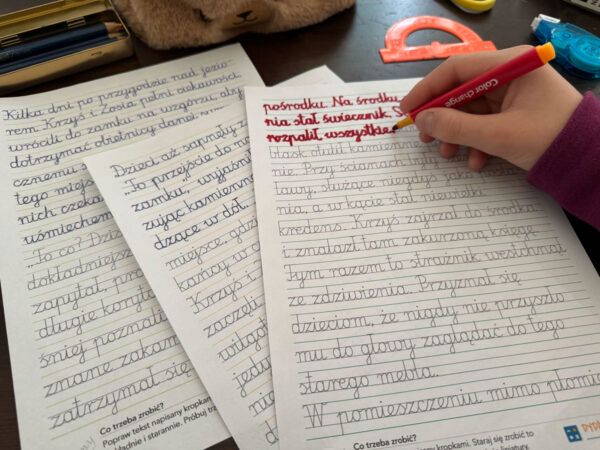 Kilka dni po przygodzie nad jezio-
rem Krzyś i Zosia pełni ciekawości
wrócili do zamku na wzgórzu, aby
dotrzymać obietnicy danej
cznemu s
tego miejs
nich czeka
uśmiechem
"To co? Dzi
dokładniejsz
zapytał, pro
długie koryt
śniej poznali
znane zakam
zatrzymał się
Co trzeba zrobić?
Popraw tekst napisany kropkami
Dzieci aż sapnęły z
"To przejście do
zamku," wyjaśni
zując kamienne
dzące w dół.
miejsce, gdzi
kańcy w c
Krzyś i
zaczęli
wilgo
jedy
nie
pośrodku. Na środku
nia stał świecznik. S
rozpalił wszystkie
blask otulił kamienne
nie. Przy ścianach były
ławy, służące niegdyś jako
nia, a w kącie stał niewielki
kredens. Krzyś zajrzał do środka
i znalazł tam zakurzoną księgę.
Tym razem to strażnik westchnął
ze zdziwienia. Przyznał się
dzieciom, że nigdy nie przyszło
mu do głowy zaglądać do tego
starego mebla.
W pomieszczeniu mimo płomie
Co trzeba zrobić?
kropkami. Staraj się zrobić to
Color change